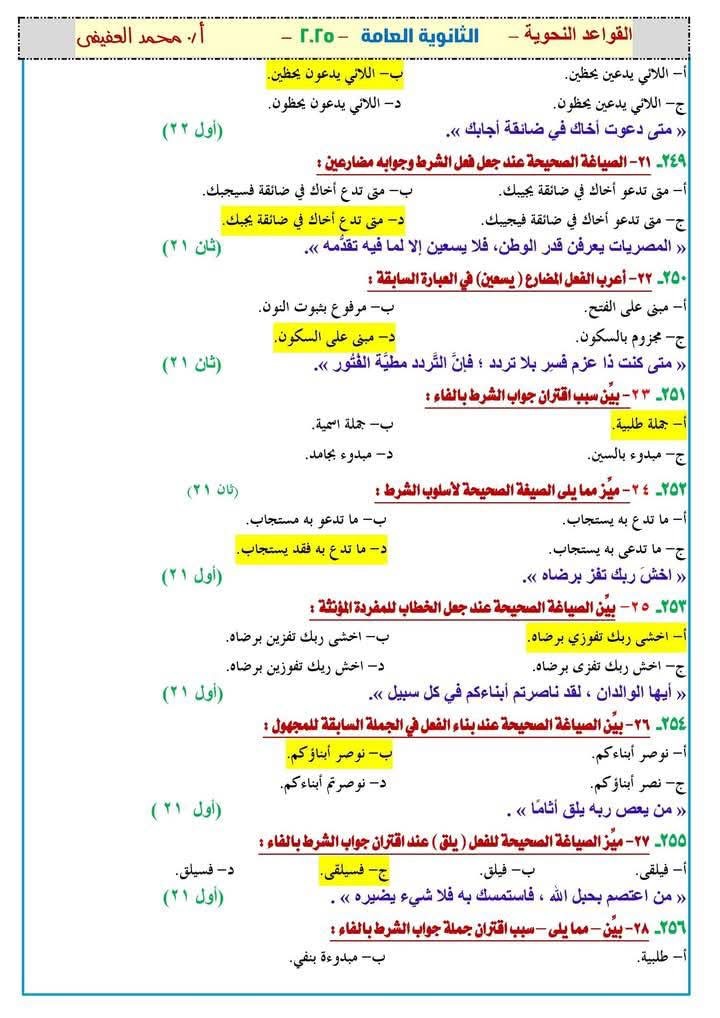 القواعد النحوية – الثانوية العامة – ٢٠٢٥ – أ/ محمد العفيفى
أ– اللائي يدعين يحظين. ب– اللائي يدعون يحظين.
ج– اللائي يدعين يحظون. د– اللائي يدعون يحظون.
« متى دعوت أخاك في ضائقة أجابك ». (أول ٢٢)
٢٤٩ـ ٢١- الصياغة الصحيحة عند جعل فعل الشرط وجوابه مضارعين :
أ– متى تدعو أخاك في ضائقة يجيبك. ب– متى تدع أخاك في ضائقة فسيجبك.
ج– متى تدعو أخاك في ضائقة فيجيبك. د– متى تدع أخاك في ضائقة يجبك.
« المصريات يعرفن قدر الوطن، فلا يسعين إلا لما فيه تقدُّمه ». (ثان ٢١)
٢٥٠ـ ٢٢- أعرب الفعل المضارع ( يسعين) في العبارة السابقة :
أ– مبنى على الفتح. ب– مرفوع بثبوت النون.
ج– مجزوم بالسكون. د– مبنى على السكون.
« متى كنت ذا عزم فسِر بلا تردد ؛ فإنَّ التَّردد مطيَّة الفُتُور ». (ثان ٢١)
٢٥١ـ ٢٣- بيِّن سبب اقتران جواب الشرط بالفاء :
أ– جملة طلبية. ب– جملة اسمية.
ج– مبدوء بالسين. د– مبدوء بجامد.
٢٥٢ـ ٢٤- ميِّز مما يلى الصيغة الصحيحة لأسلوب الشرط : (ثان ٢١)
أ– ما تدع به يستجاب. ب– ما تدعو به مستجاب.
ج– ما تدعى به يستجاب. د– ما تدع به فقد يستجاب.
« اخشَ ربك تفز برضاه ». (أول ٢١)
٢٥٣ـ ٢٥- بيِّن الصياغة الصحيحة عند جعل الخطاب للمفردة المؤنثة :
أ– اخشى ربك تفوزي برضاه. ب– اخشى ربك تفزين برضاه.
ج– اخش ربك تفزى برضاه. د– اخش ربك تفوزين برضاه.
« أيها الوالدان ، لقد ناصرتم أبناءكم في كل سبيل ». (أول ٢١)
٢٥٤ـ ٢٦- بيِّن الصياغة الصحيحة عند بناء الفعل في الجملة السابقة للمجهول :
أ– نوصر أبناءكم. ب– نوصر أبناؤكم.
ج– نصر أبناؤكم. د– نوصرتم أبناءكم.
« من يعص ربه يلق أثامًا » . (أول ٢١ )
٢٥٥ـ ٢٧- ميِّز الصياغة الصحيحة للفعل ( يلق ) عند اقتران جواب الشرط بالفاء :
أ– فيلقى. ب– فيلق. ج– فسيلقى. د– فسيلق.
« من اعتصم بحبل الله ، فاستمسك به فلا شيء يضيره » . (أول ٢١)
٢٥٦ـ ٢٨- بيِّن – مما يلى – سبب اقتران جملة جواب الشرط بالفاء :
أ– طلبية. ب– مبدوءة بنفي.